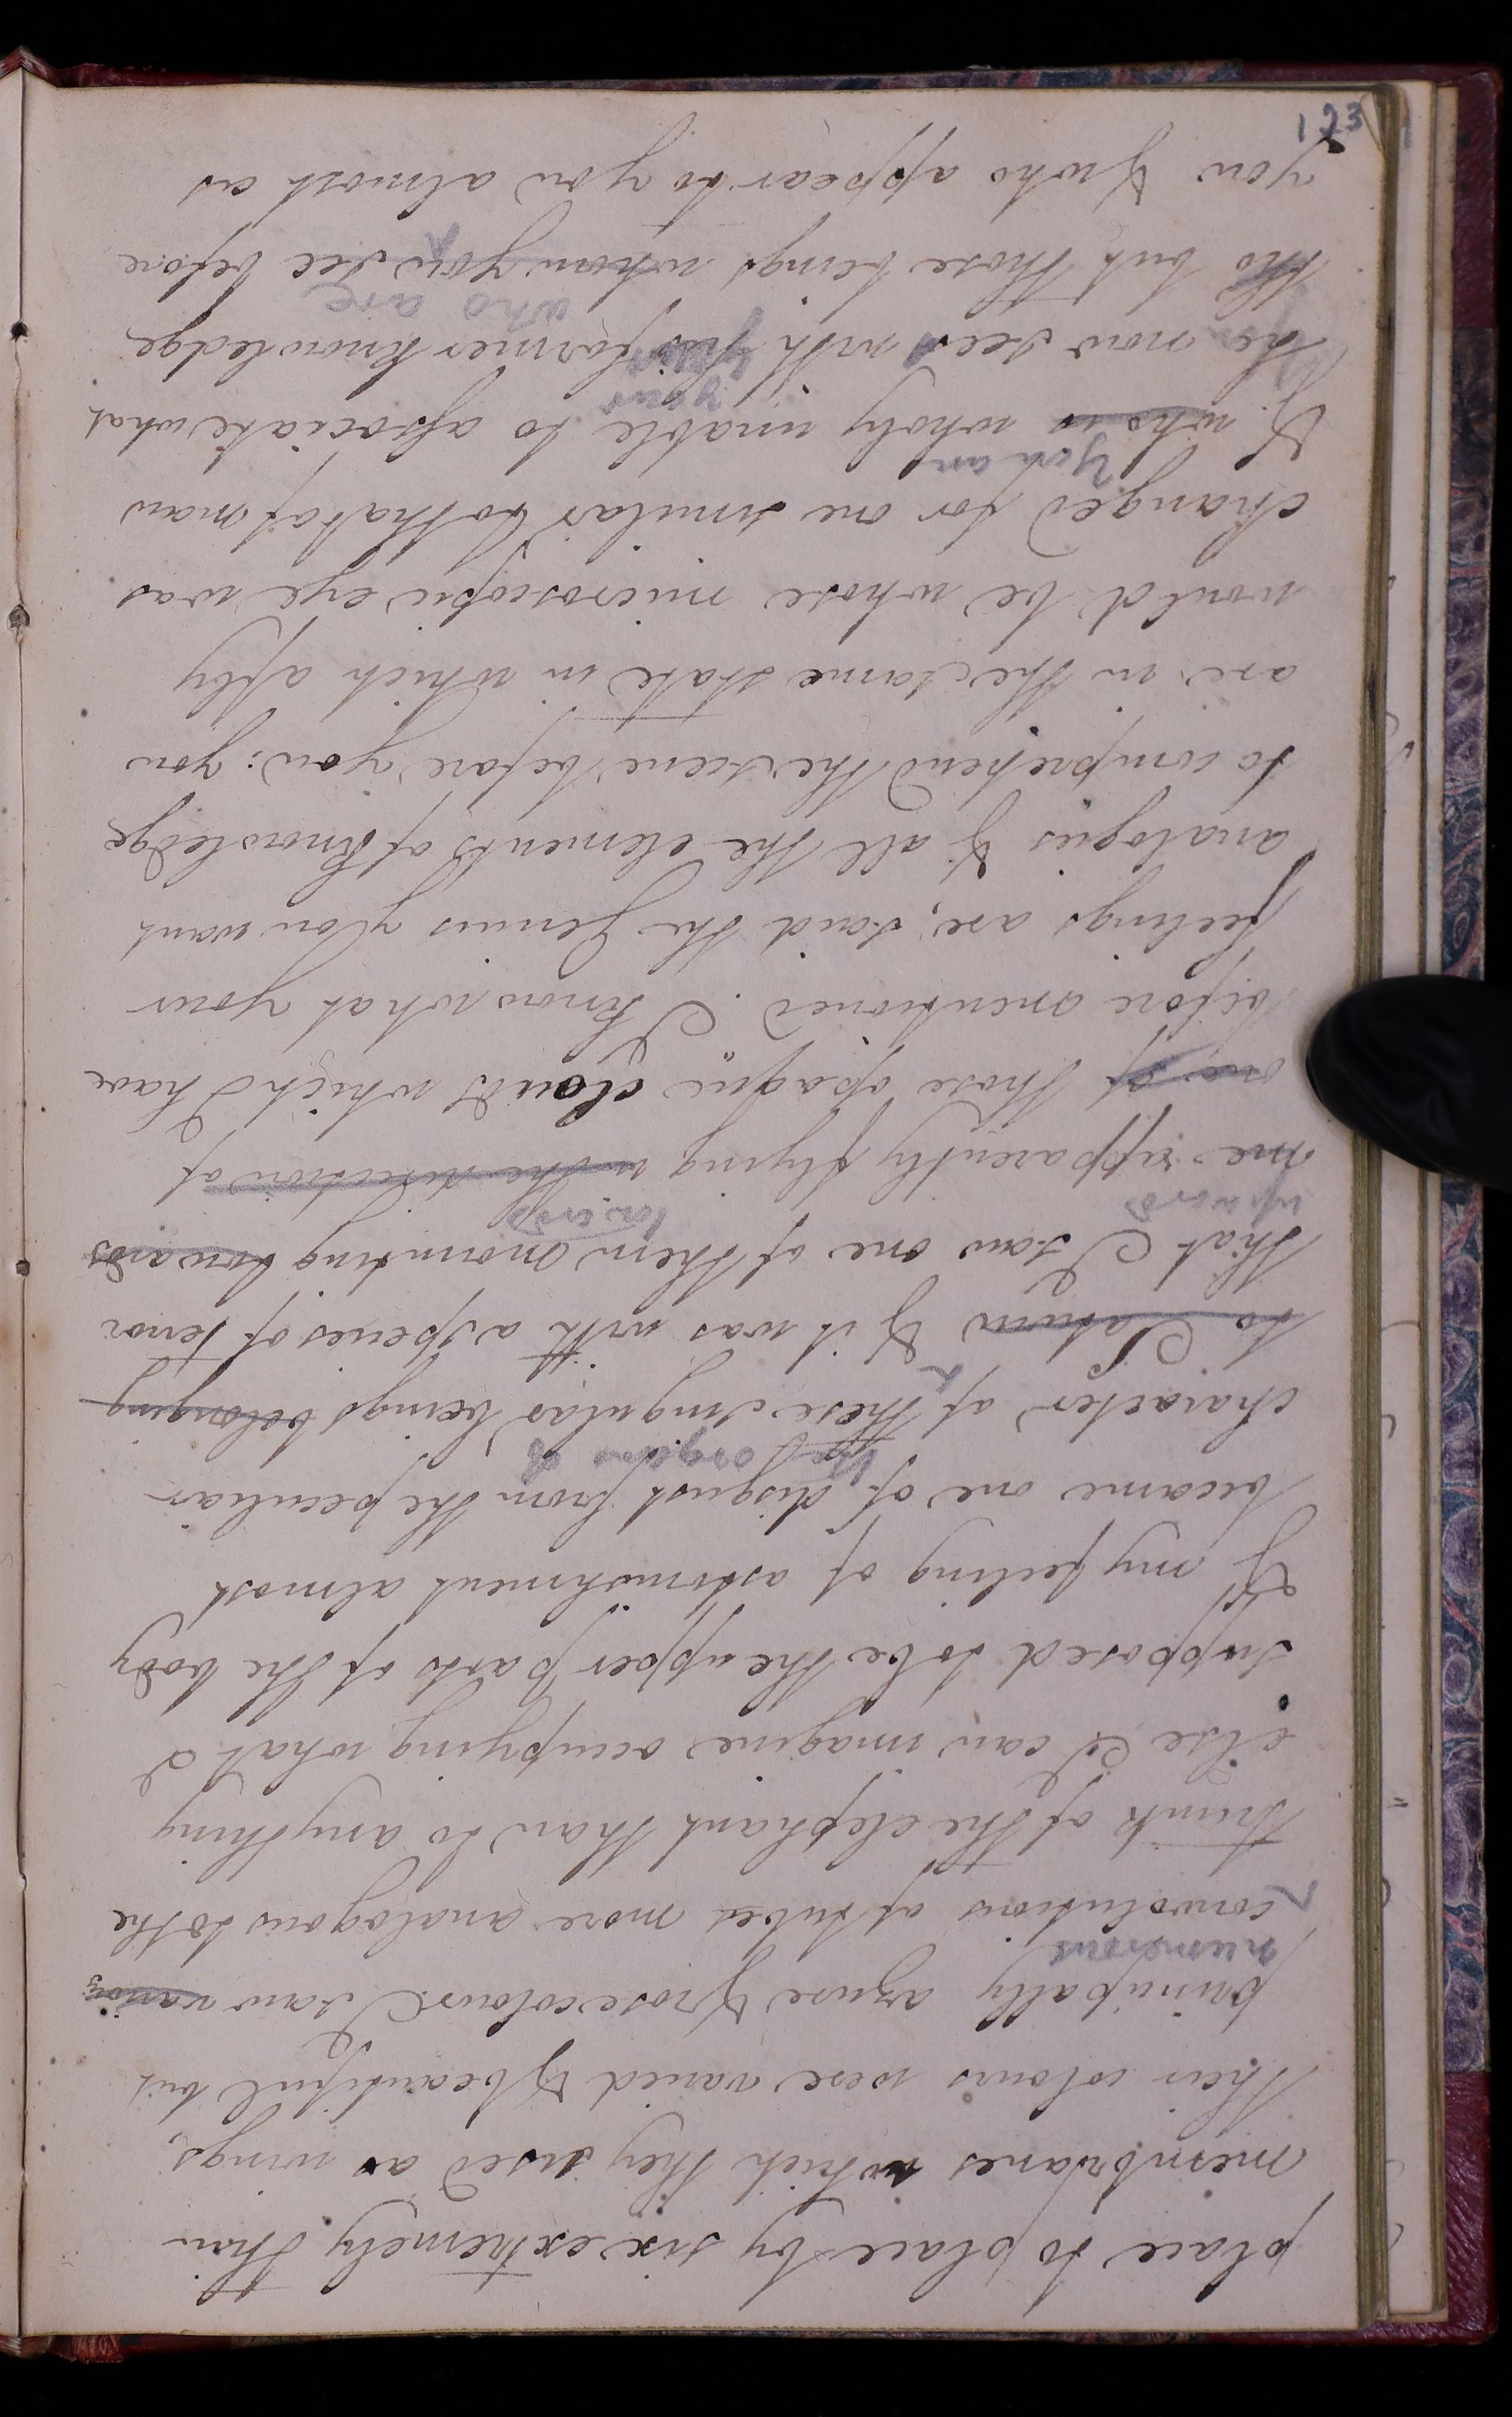 place to place by six extremely thin
membranes which they used as wings,
their colours were varied & beautiful but
principally azure & rose colour. I saw various
numerous
convolutions of tubes more analogous to the
trunk of the elephant than to anything
else I can imagine occupying what I
supposed to be the upper parts of the body
& my feeling of astonishment almost
became one of disgust from the peculiar
the organs of
character of these singular beings belonging
to Saturn & it was with a species of terror
that I saw one of them mounting towards
upwards
towards
me apparently flying in the direction of
one of those opaque clouds which I have
before mentioned. I know what your
feelings are, said the Genius you want
analogies & all the elements of knowledge
to comprehend the scene before you: you
are in the same state in which a fly
would be whose microscopic eye was
changed for one similar to that of man
you are
& who is wholy unable to associate what
your
he now sees with his former knowledge
who are
tho but those beings whom you see before
you & who appear to you almost as
123